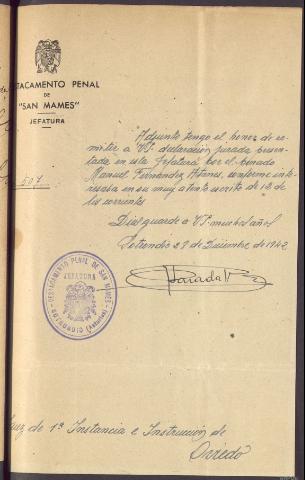 STACAMENTO PENAL
DE
"SAN MAMES"
JEFATURA
507
Adjunto tengo el honor de re-
mitir a VS. declaración jurada presen-
tada en esta Jefatura por el penado
Manuel Fernández conforme inte-
resaba en su muy atento escrito de 12 de
los corrientes
Dios guarde a VS. muchos años
Sotrondio 29 de Diciembre de 1942
Parada
DESTACAMENTO PENAL DE SAN MAMES
JEFATURA
SOTRONDIO (Asturias)
Juez de 1ª Instancia e Instrucción de
Oviedo